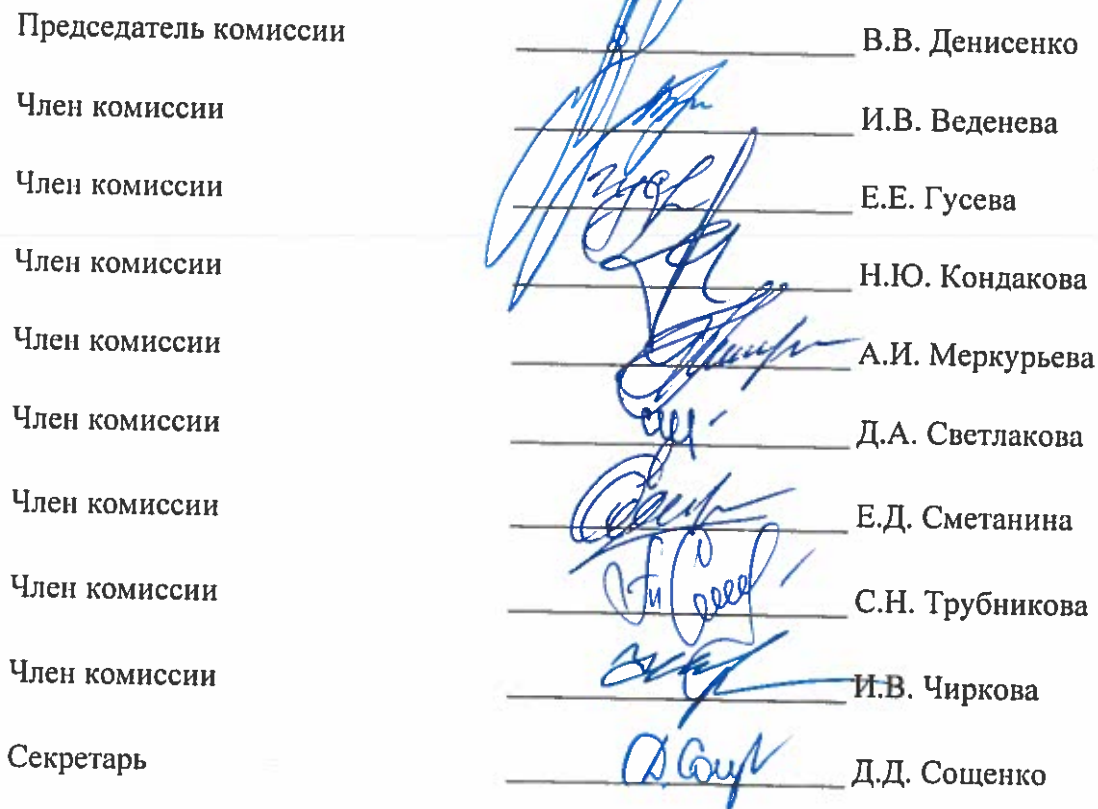 Председатель комиссии В.В. Денисенко
Член комиссии И.В. Веденева
Член комиссии Е.Е. Гусева
Член комиссии Н.Ю. Кондакова
Член комиссии А.И. Меркурьева
Член комиссии Д.А. Светлакова
Член комиссии Е.Д. Сметанина
Член комиссии С.Н. Трубникова
Член комиссии И.В. Чиркова
Секретарь Д.Д. Сощенко